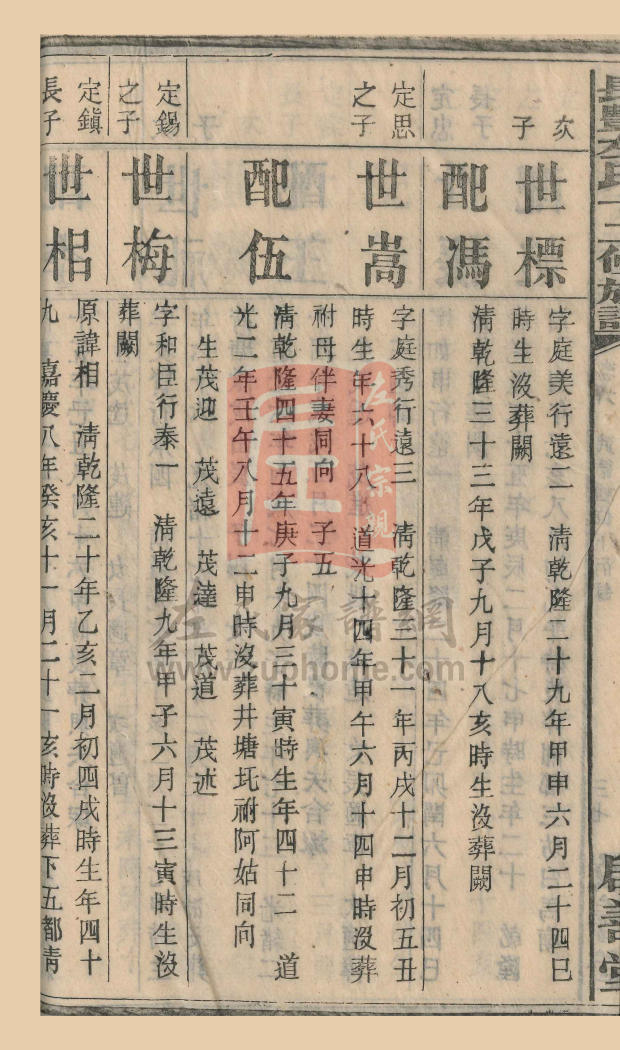 次子
世標
字庭美行遠二 清乾隆二十九年甲申六月二十四巳
時生沒葬闕
配馮
清乾隆三十三年戊子九月十八亥時生沒葬闕
定思之子
世嵩
字庭秀行遠三 清乾隆三十一年丙戌十二月初五丑
時生年六十八 道光十四年甲午六月十四申時沒葬
祔母伴妻同向 子五
配伍
清乾隆四十五年庚子九月三十寅時生年四十二 道
光二年壬午八月十二申時沒葬井塘圫祔阿姑同向
生茂迎 茂遠 茂達 茂道 茂述
定錫之子
世梅
字和臣行泰一 清乾隆九年甲子六月十三寅時生沒
葬闕
定鎮長子
世梠
原諱相 清乾隆二十年乙亥二月初四戌時生年四十
九 嘉慶八年癸亥十一月二十一亥時沒葬下五都靑
左氏宗親
左氏家譜網
www.zuohome.com